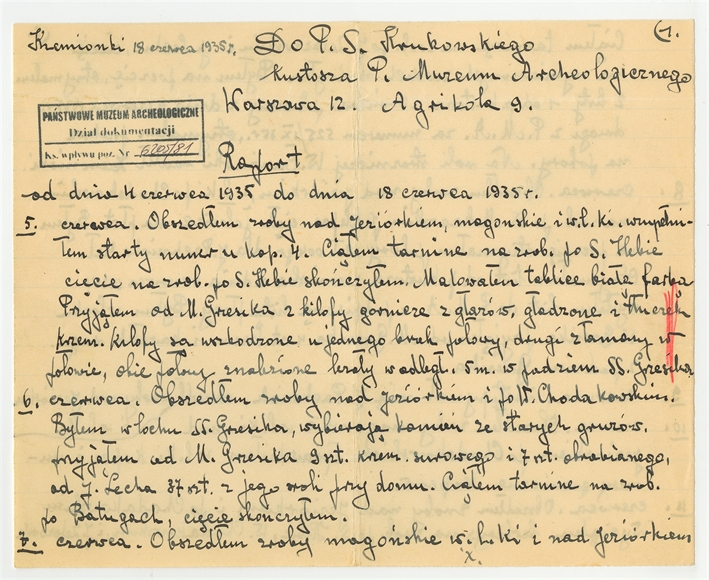 1.
Krzemionki 18 czerwca 1935 r. Do P. S. Krukowskiego
Kustosza P. Muzeum Archeologicznego
Warszawa 12. Agrikola 9.
PAŃSTWOWE MUZEUM ARCHEOLOGICZNE
Dział dokumentacji
Ks. wpływu poz. Nr 6205/81
Raport
od dnia 4 czerwca 1935 do dnia 18 czerwca 1935 r.
5. czerwca. Obszedłem zroby nad Jeziórkiem, magońskie i w.l.ki. uzupełni-
łem starty numer u kop. 4. Ciąłem tarnine na zrob. po S. Hebie
cięcie na zrob. po S. Hebie skończyłem. Malowałem tablice białą farba
Przyjąłem od M. Gresika 2 kilofy gorniere z głazów, gładzone i tłuczek
krzem. Kilofy sa uszkodzone u jednego brak połowy, drugi złamany w
połowie, obie połowy znalezione leżały w odległ. 5 m. w padziem SS. Gresika.
6. czerwca. Obszedłem zroby nad Jeziórkiem i po W. Chodakowskim.
Byłem w lochu SS. Gresika, wybierają kamien ze starych gruzów.
przyjąłem od M. Gresika 9 szt. krzem. surowego i 7 szt. obrabianego,
od J. Lecha 37 szt. z jego roli przy domu. Ciąłem tarnine na zrob.
po Baługach, cięcie skończyłem.
7. czerwca. Obszedłem zroby magońskie w. l. ki i nad Jeziórkiem
x.